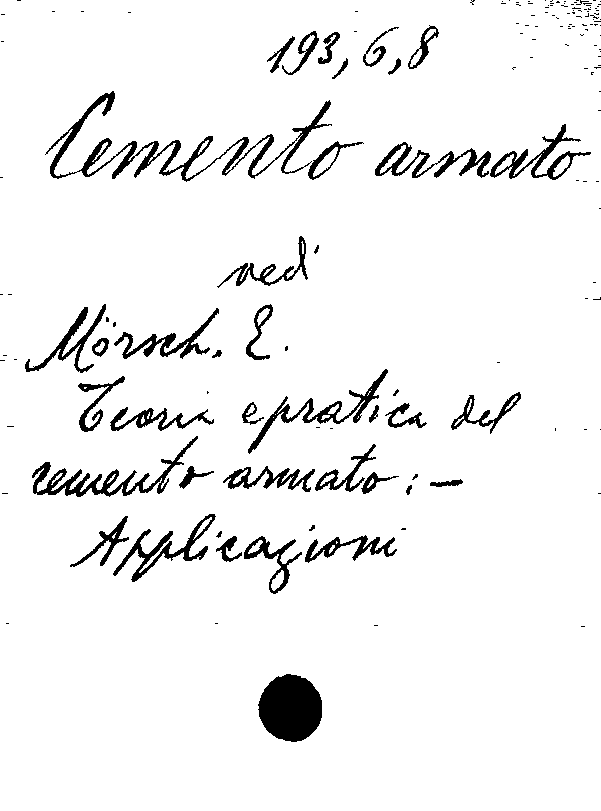 193,6,8
Cemento armato
vedi
Mörsch. E.
Teoria e pratica del
cemento armato : —
Applicazioni